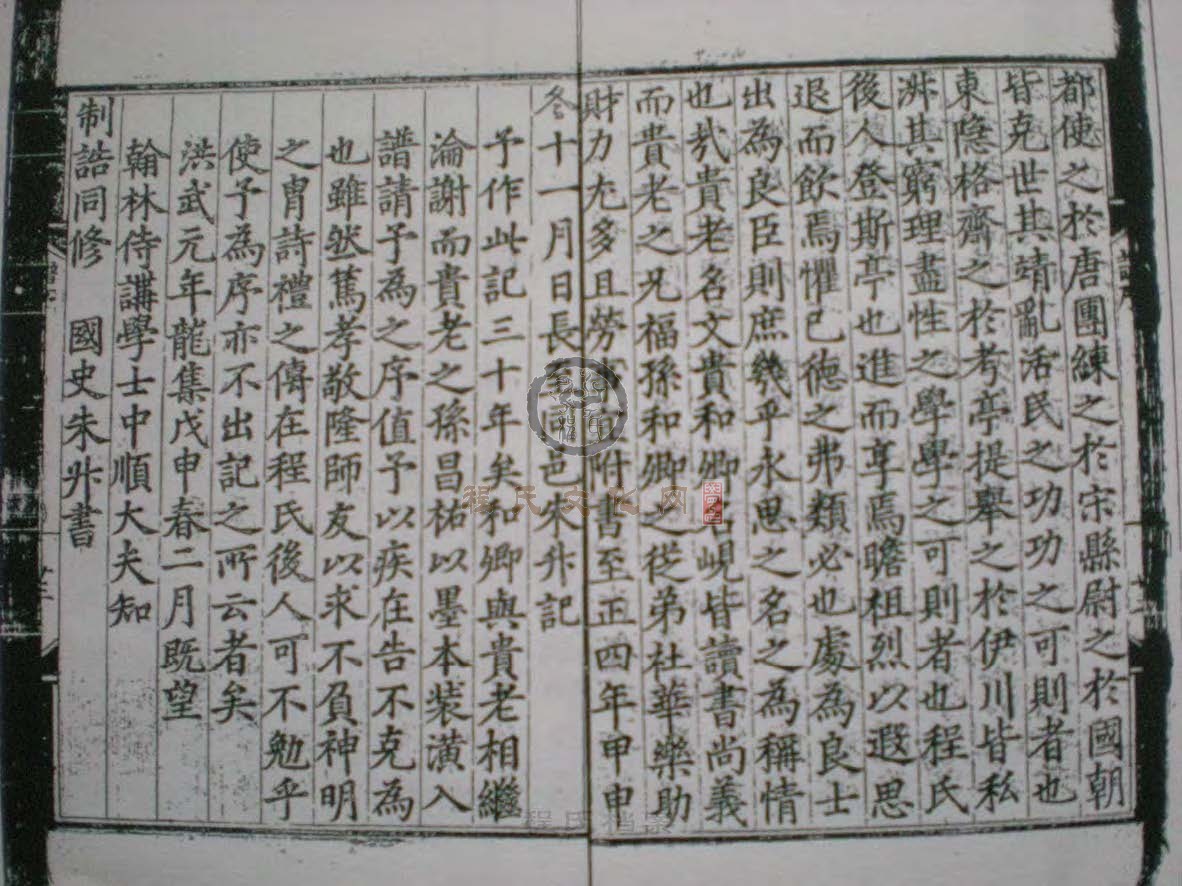 都使之於唐團練之於宋縣尉之於國朝
皆克世其靖亂活民之功功之可則者也
東隐格齋之於考亭提舉之於伊川皆私
淑其窮理盡性之學學之可則者也程氏
後人登斯亭也進而享焉瞻祖烈以遐思
退而飲焉懼己德之弗類必也處為良士
出為良臣則庶幾乎永思之名之為稱情
也㢤貴老名文貴和卿名峴皆讀書尚義
而貴老之兄福孫和卿之從弟社華樂助
財力尤多且勞宜附書至正四年甲申
冬十一月日長至同邑朱升記
予作此記三十年矣和卿與貴老相繼
淪謝而貴老之孫昌祐以墨本裝潢入
譜請予為之序值予以疾在告不克為
也雖然篤孝敬隆師友以求不負神明
之胄詩禮之傳在程氏後人可不勉乎
使予為序亦不出記之所云者矣
洪武元年龍集戊申春二月既望
翰林侍講學士中順大夫知
制誥同修 國史朱升書
程氏文化网
程氏档案